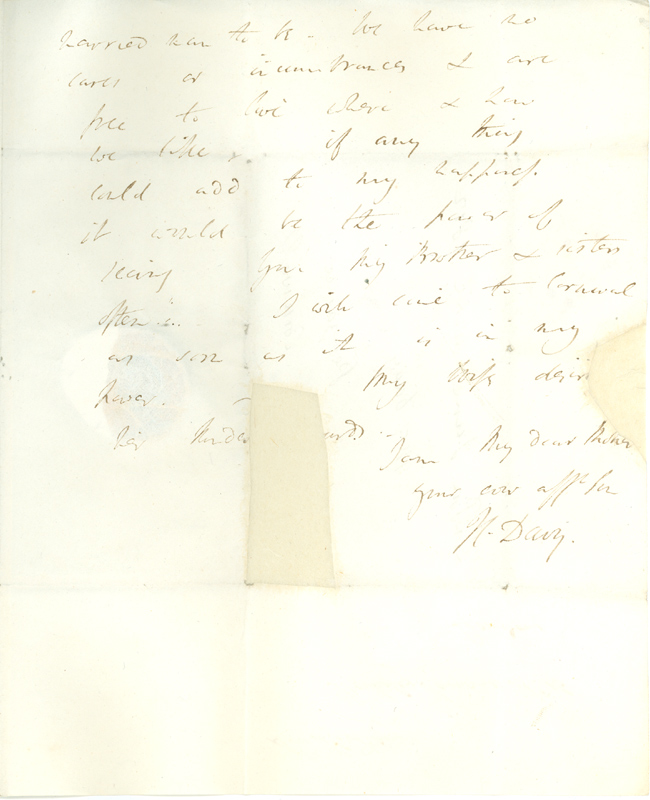 married man to be. We have no
cares or incumbrances & are
free to live where & how
we like & if any thing
could add to my happiness
it would be the power of
seeing you my Brother & sisters
often
I will come to Cornwall
as soon as it is in my
power. My Wife desires
her kindest
I am My dear Mother
your ever affte son
H. Davy.